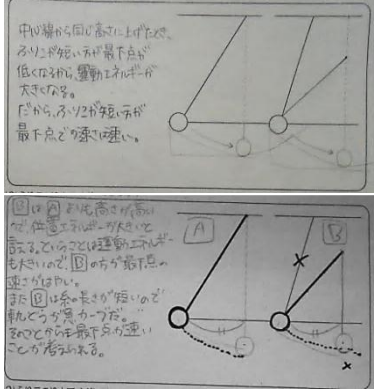 中心線から同じ高さに上げたとき、
ふりこが短い方が最下点が
低くなるから、運動エネルギーが
大きくなる。
だから、ふりこが短い方が
最下点での速さは速い。
BはAよりも高さが高い
ので、位置エネルギーが大きいと
言える。ということは運動エネルギー
も大きいので、Bの方が最下点の
速さがはやい。
またBは糸の長さが短いので
軌どうが急カーブだ。
そのことからも最下点が速い
ことが考えられる。
A
B